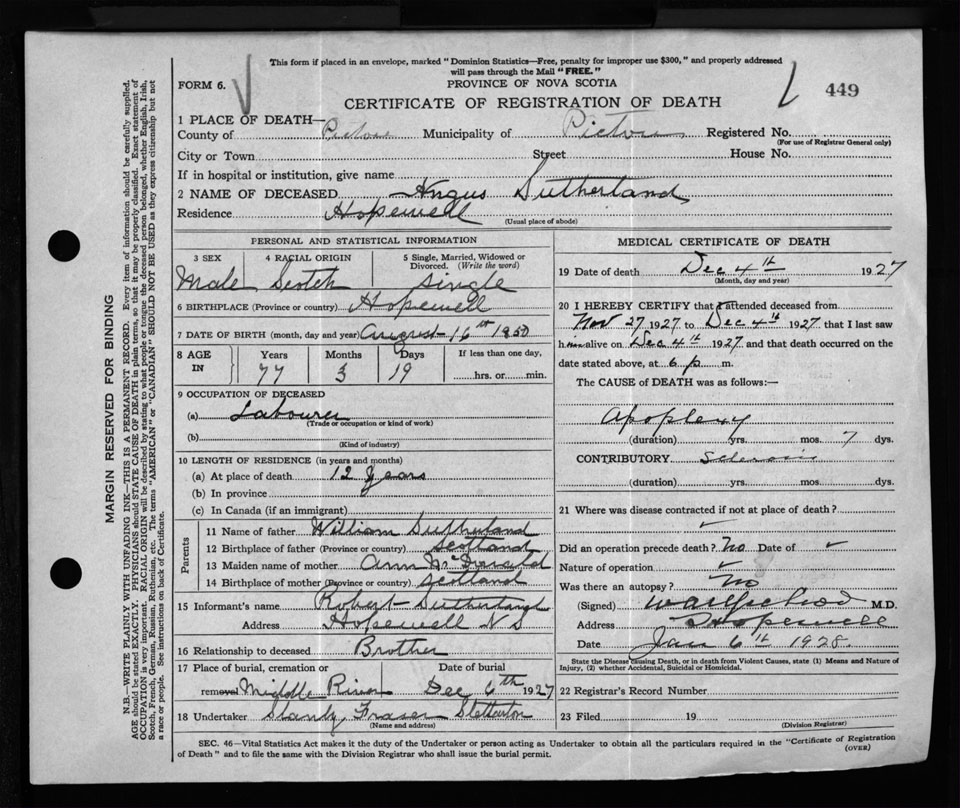 This form if placed in an envelope, marked "Dominion Statistics—Free, penalty for improper use $300," and properly addressed
will pass through the Mail "FREE."
FORM 6.
PROVINCE OF NOVA SCOTIA
449
CERTIFICATE OF REGISTRATION OF DEATH
1 PLACE OF DEATH—
County of Pictou Municipality of Pictou Registered No.
(For use of Registrar General only)
City or Town Street House No.
If in hospital or institution, give name
2 NAME OF DECEASED Angus Sutherland
Residence Hopewell
(Usual place of abode)
PERSONAL AND STATISTICAL INFORMATION
3 SEX 4 RACIAL ORIGIN 5 Single, Married, Widowed or
Divorced. (Write the word)
Male Scotch Single
6 BIRTHPLACE (Province or country) Hopewell
7 DATE OF BIRTH (month, day and year) August 16th 1850
8 AGE IN Years Months Days If less than one day,
77 3 19 hrs. or min.
9 OCCUPATION OF DECEASED
(a) Labourer
(Trade or occupation or kind of work)
(b)
(Kind of industry)
10 LENGTH OF RESIDENCE (in years and months)
(a) At place of death 12 years
(b) In province
(c) In Canada (if an immigrant)
Parents
11 Name of father William Sutherland
12 Birthplace of father (Province or country) Scotland
13 Maiden name of mother Ann McDonald
14 Birthplace of mother (Province or country) Scotland
15 Informant's name Robert Sutherland
Address Hopewell N S
16 Relationship to deceased Brother
17 Place of burial, cremation or Date of burial
removal Middle River Dec 6th 1927
18 Undertaker Stanly Fraser Stellarton
(Name and address)
MEDICAL CERTIFICATE OF DEATH
19 Date of death Dec 4th 1927
(Month, day and year)
20 I HEREBY CERTIFY that I attended deceased from
Nov 27 1927 to Dec 4th 1927 that I last saw
him alive on Dec 4th 1927 and that death occurred on the
date stated above, at 6 p m.
The CAUSE of DEATH was as follows:—
Apoplexy
(duration) yrs. mos. 7 dys.
CONTRIBUTORY Sclerosis
(duration) yrs. mos. dys.
21 Where was disease contracted if not at place of death?
Did an operation precede death? No Date of
Nature of operation
Was there an autopsy? No
(Signed) M.D.
Address Hopewell
Date Jan 6th 1928
State the Disease causing Death, or in death from Violent Causes, state (1) Means and Nature of
Injury, (2) whether Accidental, Suicidal or Homicidal.
22 Registrar's Record Number
23 Filed 19
(Division Registrar)
SEC. 46—Vital Statistics Act makes it the duty of the Undertaker or person acting as Undertaker to obtain all the particulars required in the "Certificate of Registration
of Death" and to file the same with the Division Registrar who shall issue the burial permit.
(OVER)
MARGIN RESERVED FOR BINDING
N.B.—WRITE PLAINLY WITH UNFADING INK—THIS IS A PERMANENT RECORD. Every item of information should be carefully supplied.
AGE should be stated EXACTLY. PHYSICIANS should STATE CAUSE OF DEATH in plain terms, so that it may be properly classified. Exact statement of
OCCUPATION is very important. RACIAL ORIGIN will be described by stating to what people or tongue the deceased person belonged, whether English, Irish,
Scotch, French, German, Russian, Ruthenian, etc. The terms "AMERICAN" or "CANADIAN" SHOULD NOT BE USED as they express citizenship but not
a race or people. See instructions on back of Certificate.